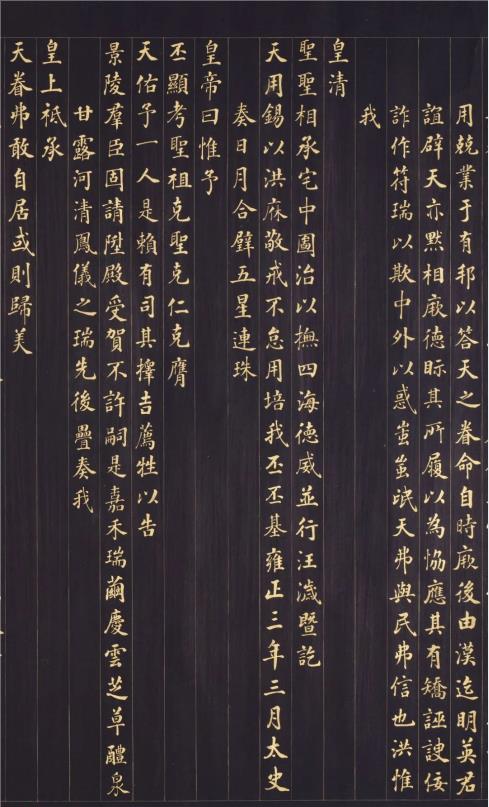 用兢業于有邦以答天之眷命自時厥後由漢迄明英君
誼辟天亦默相厥德眎其所履以為恊應其有矯誣諛佞
詐作符瑞以欺中外以惑蚩蚩氓天弗與民弗信也洪惟
我
皇清
聖聖相承宅中圖治以撫四海德威並行汪濊暨訖
天用錫以洪庥敬戒不怠用培我丕丕基雍正三年三月太史
奏日月合璧五星連珠
皇帝曰惟予
丕顯考聖祖克聖克仁克膺
天佑予一人是賴有司其擇吉薦牲以告
景陵羣臣固請陞殿受賀不許嗣是嘉禾瑞繭慶雲芝草醴泉
甘露河清鳳儀之瑞先後疊奏我
皇上祗承
天眷弗敢自居或則歸美